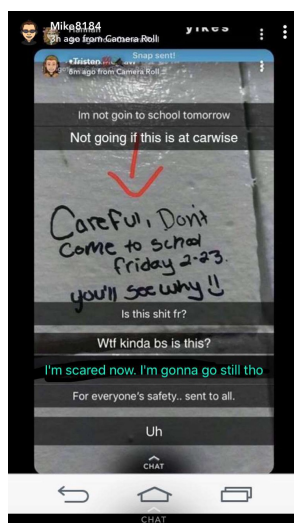 Mike8184
yikes
3h ago from Camera Roll
Snap sent!
Tristen
8m ago from Camera Roll
Im not goin to school tomorrow
Not going if this is at carwise
Careful, Don't
come to school
friday 2-23.
you'll see why
Is this shit fr?
Wtf kinda bs is this?
I'm scared now. I'm gonna go still tho
For everyone's safety.. sent to all.
Uh
CHAT
CHAT